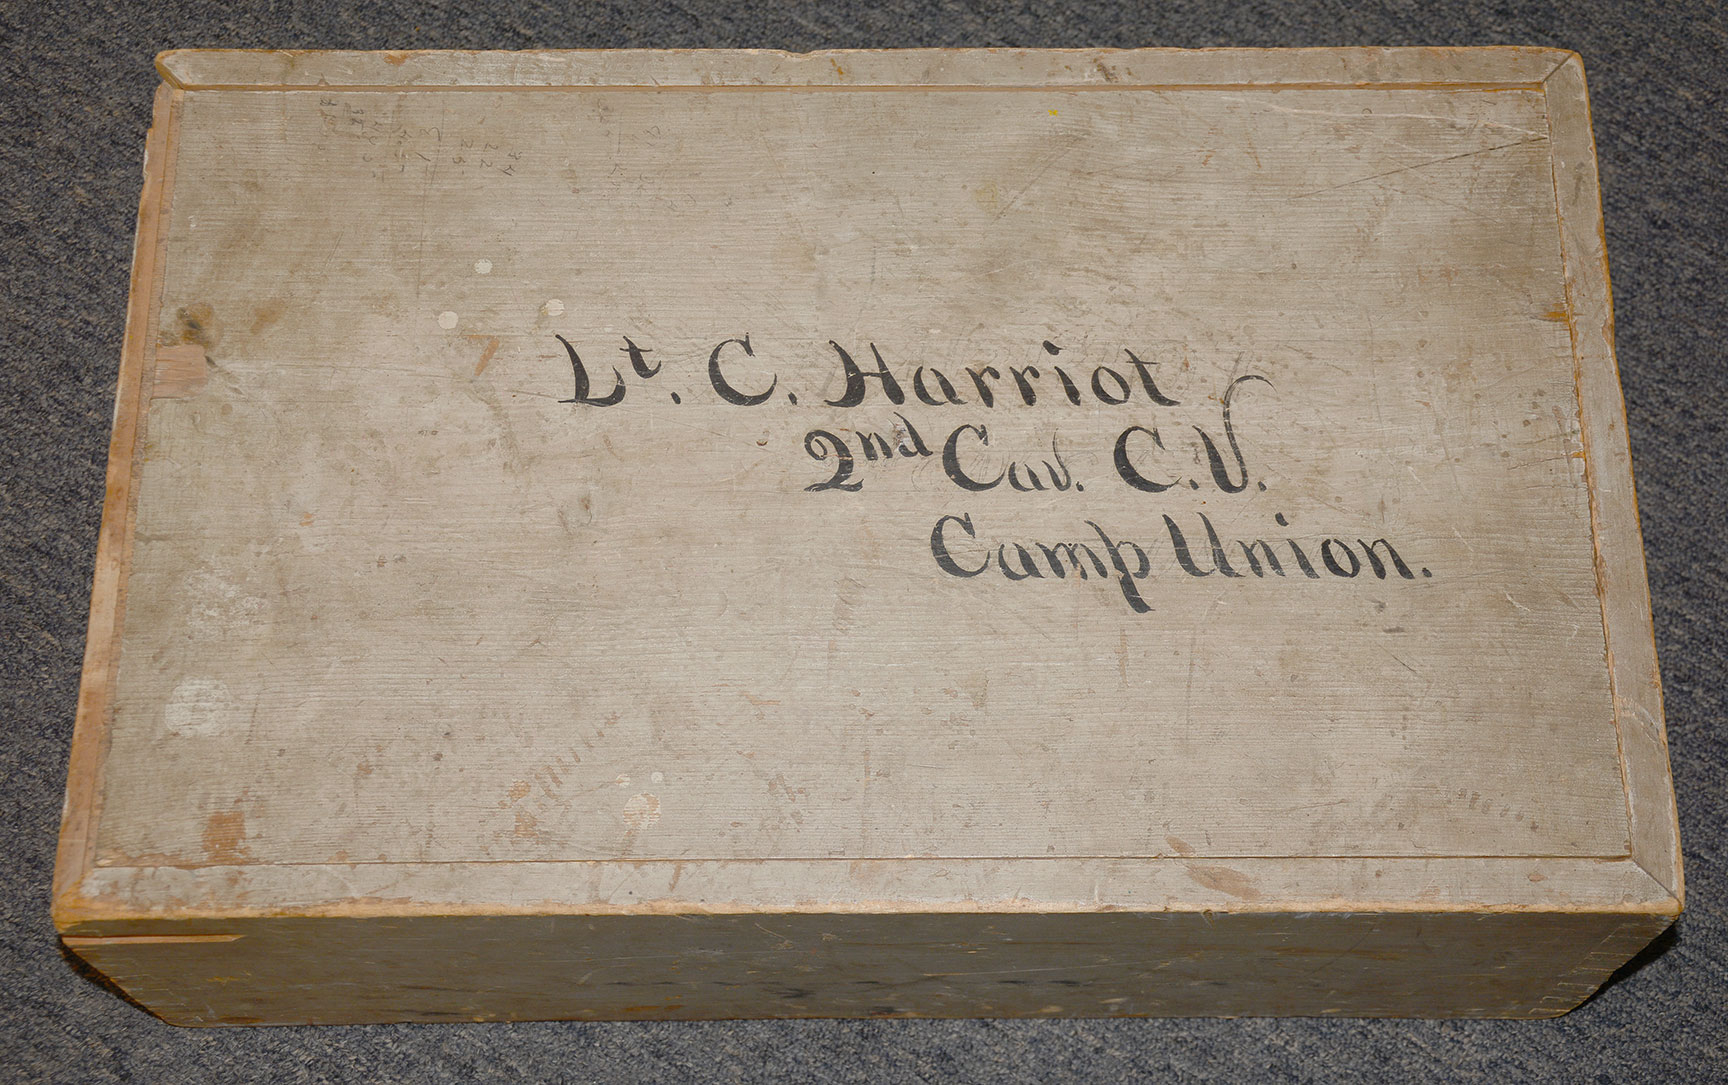 Lt. C. Harriot
2nd Cav. C.V.
Camp Union.